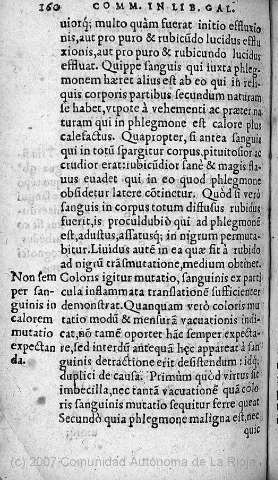 160 COMM. IN LIB. GAL.
uiorq; multo quàm fuerat initio effluxio
nis, aut pro puro & rubicũdo lucidus efflu
xionis, aut pro puro & rubicundo lucidus
effluat. Quippe sanguis qui iuxta phleg-
monem hæret alius est ab eo qui in reli-
quis corporis partibus secundum naturam
se habet, vtpote à vehementi ac præter na
turam qui in phlegmone est calore plus
calefactus. Quapropter, si antea sanguis
qui in totũ spargitur corpus, pituitosior ac
crudior erat: rubicũdior sanè & magis fla-
uus euadet qui in eo quod phlegmone
obsidetur latere cõtinetur. Quòd si verò
sanguis in corpus totum diffusus rubidus
fuerit, is proculdubiò qui ad phlegmonẽ
est, adustus, assatusq; in nigrum permuta-
bitur. Liuidus autẽ in ea quæ fit à rubido
ad nigrũ trãsmutatione, medium obtinet.
Non sem Coloris igitur mutatio, sanguinis ex parti
per san- cula inflammata translationẽ sufficienter
guinis in demonstrat. Quanquam verò coloris mu
calorem tatio modũ & mensurã vacuationis indi-
mutatio cat, nõ tamẽ oportet hãc semper expecta-
expectan re, sed interdũ antequã hęc appareat à san
da. guinis detractione erit desistendum: idq;
duplici de causa. Primùm quòd virtus sit
imbecilla, nec tantã vacuationẽ quã colo
ris sanguinis mutatio sequitur ferre queat
Secundò quia phlegmone maligna est, nec
quic
(c) 2007 Comunidad Autónoma de La Rioja